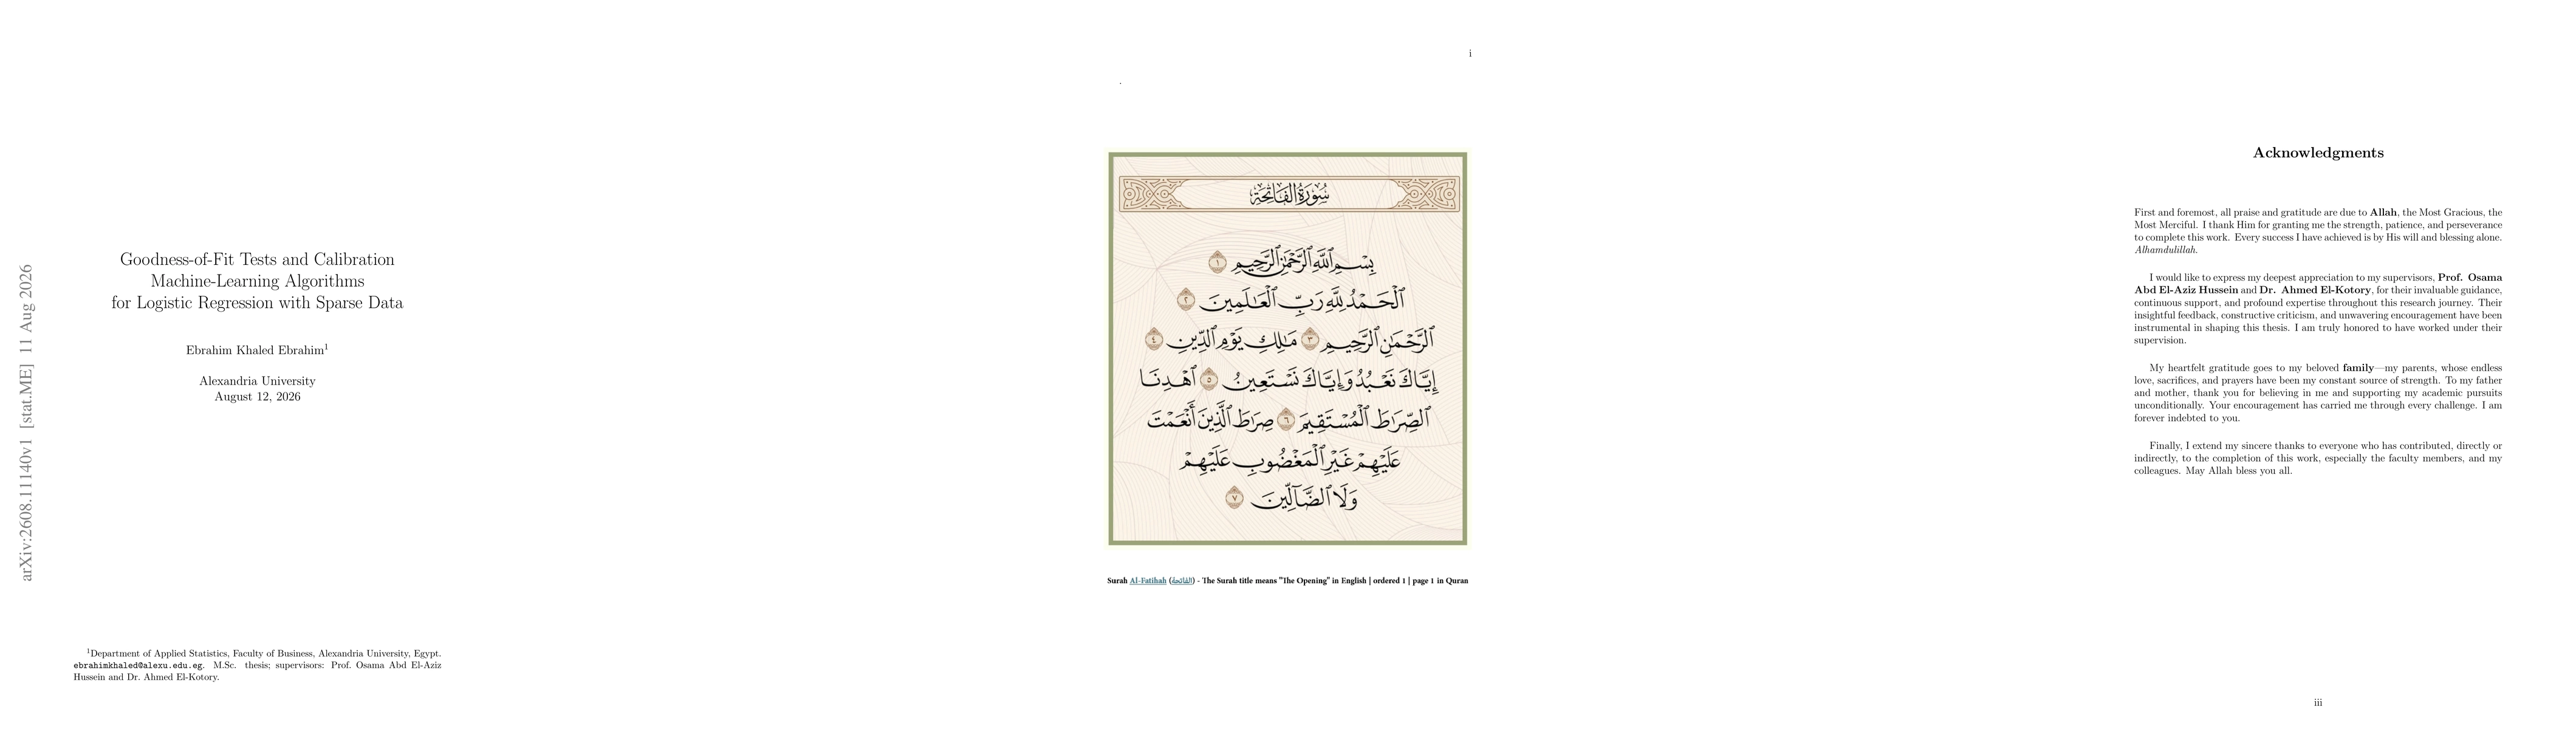 arXiv:2608.11140v1 [stat.ME] 11 Aug 2026
Goodness-of-Fit Tests and Calibration
Machine-Learning Algorithms
for Logistic Regression with Sparse Data
Ebrahim Khaled Ebrahim1
Alexandria University
August 12, 2026
1Department of Applied Statistics, Faculty of Business, Alexandria University, Egypt.
ebrahimkhaled@alexu.edu.eg. M.Sc. thesis; supervisors: Prof. Osama Abd El-Aziz
Hussein and Dr. Ahmed El-Kotory.
i
.
سُورَةُ الْفَاتِحَةِ
بِسْمِ ٱللَّهِ ٱلرَّحْمَٰنِ ٱلرَّحِيمِ ١
ٱلْحَمْدُ لِلَّهِ رَبِّ ٱلْعَٰلَمِينَ ٢
ٱلرَّحْمَٰنِ ٱلرَّحِيمِ ٣ مَٰلِكِ يَوْمِ ٱلدِّينِ ٤
إِيَّاكَ نَعْبُدُ وَإِيَّاكَ نَسْتَعِينُ ٥ ٱهْدِنَا
ٱلصِّرَٰطَ ٱلْمُسْتَقِيمَ ٦ صِرَٰطَ ٱلَّذِينَ أَنْعَمْتَ
عَلَيْهِمْ غَيْرِ ٱلْمَغْضُوبِ عَلَيْهِمْ
وَلَا ٱلضَّآلِّينَ ٧
Surah Al-Fatihah (الفاتحة) - The Surah title means "The Opening" in English | ordered 1 | page 1 in Quran
Acknowledgments
First and foremost, all praise and gratitude are due to Allah, the Most Gracious, the
Most Merciful. I thank Him for granting me the strength, patience, and perseverance
to complete this work. Every success I have achieved is by His will and blessing alone.
Alhamdulillah.
I would like to express my deepest appreciation to my supervisors, Prof. Osama
Abd El-Aziz Hussein and Dr. Ahmed El-Kotory, for their invaluable guidance,
continuous support, and profound expertise throughout this research journey. Their
insightful feedback, constructive criticism, and unwavering encouragement have been
instrumental in shaping this thesis. I am truly honored to have worked under their
supervision.
My heartfelt gratitude goes to my beloved family—my parents, whose endless
love, sacrifices, and prayers have been my constant source of strength. To my father
and mother, thank you for believing in me and supporting my academic pursuits
unconditionally. Your encouragement has carried me through every challenge. I am
forever indebted to you.
Finally, I extend my sincere thanks to everyone who has contributed, directly or
indirectly, to the completion of this work, especially the faculty members, and my
colleagues. May Allah bless you all.
iii